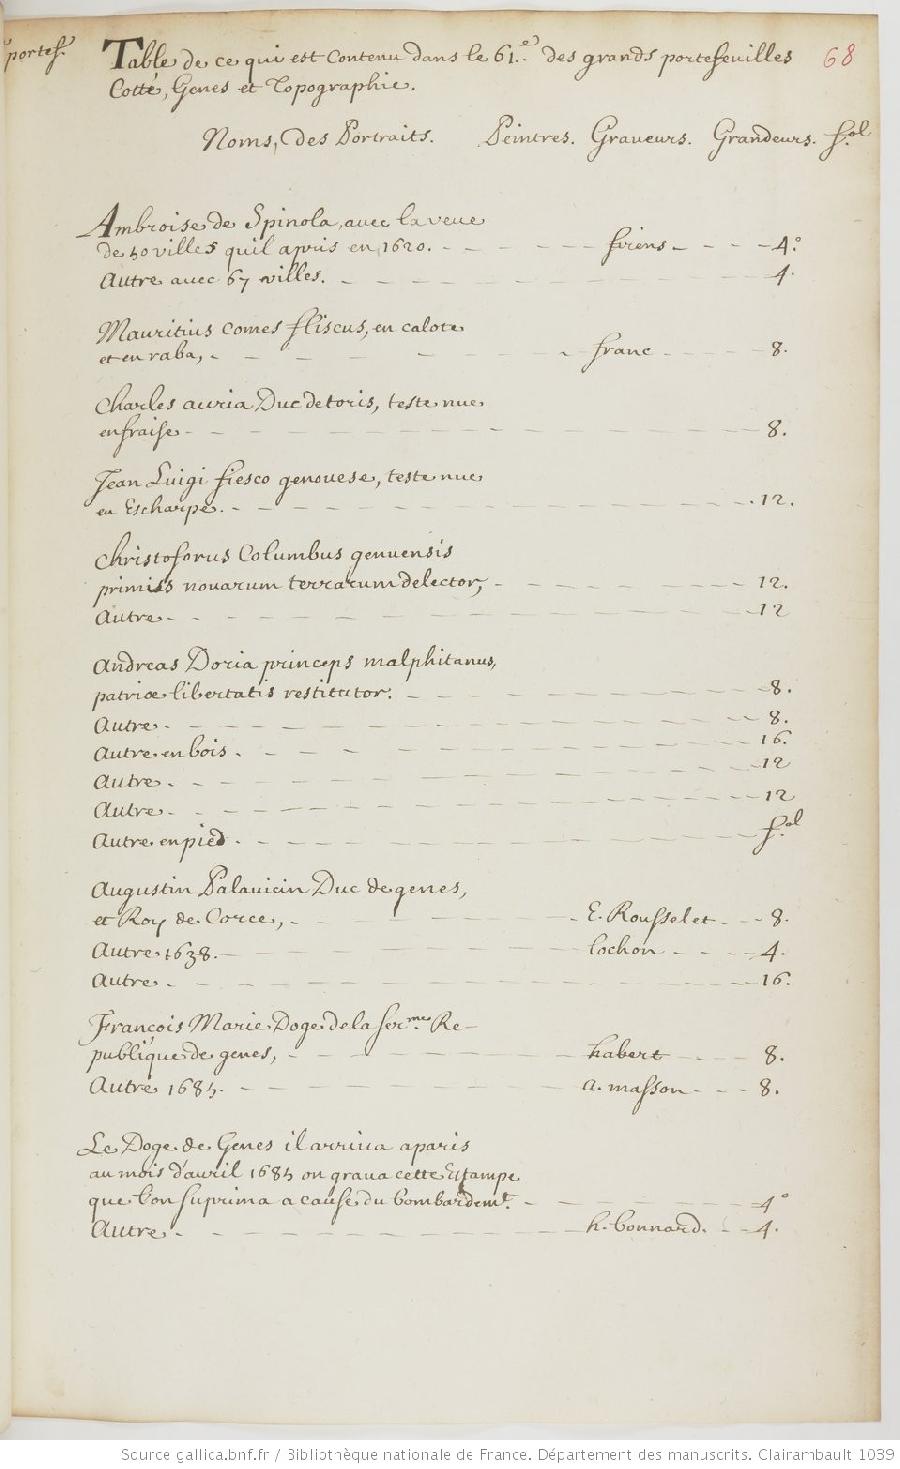 portef.
Table de ce qui est Contenu dans le 61.e des grands portefeuilles 68
Cotté, Genes et Topographie.
Noms, des Portraits. Peintres. Graveurs. Grandeurs. fol
Ambroise de Spinola, avec la veue
de 50 villes quil apris en 1620. firens 4.o
Autre avec 67 villes. 4
Mauritius comes fliscus, en calote
et en raba, franc 8.
Charles auria Duc de toris, teste nue
enfraise 8.
Jean Luigi fiesco genouese, teste nue
en Escharpe. 12.
Christoforus Columbus genuensis
primus nouarum terrarum delector, 12.
Autre 12
Andreas Doria princeps malphitanus,
patriæ libertatis restitutor. 8.
Autre 8.
Autre en bois. 16.
Autre. 12
Autre. 12
Autre en pied. fol
Augustin Palauicin Duc de genes,
et Roy de Corce, E. Rousselet 8.
Autre 1638. lochon 4.
Autre. 16.
François Marie Doge de la ser.me Re-
publique de genes, habert 8.
Autre 1685. a. masson 8.
Le Doge de Genes il arriua aparis
au mois d'auril 1685 on graua cette Estampe
que l'on suprima a cause du bombardemt. 4o
Autre. h. bonnard. 4.
Source gallica.bnf.fr / Bibliothèque nationale de France. Département des manuscrits. Clairambault 1039